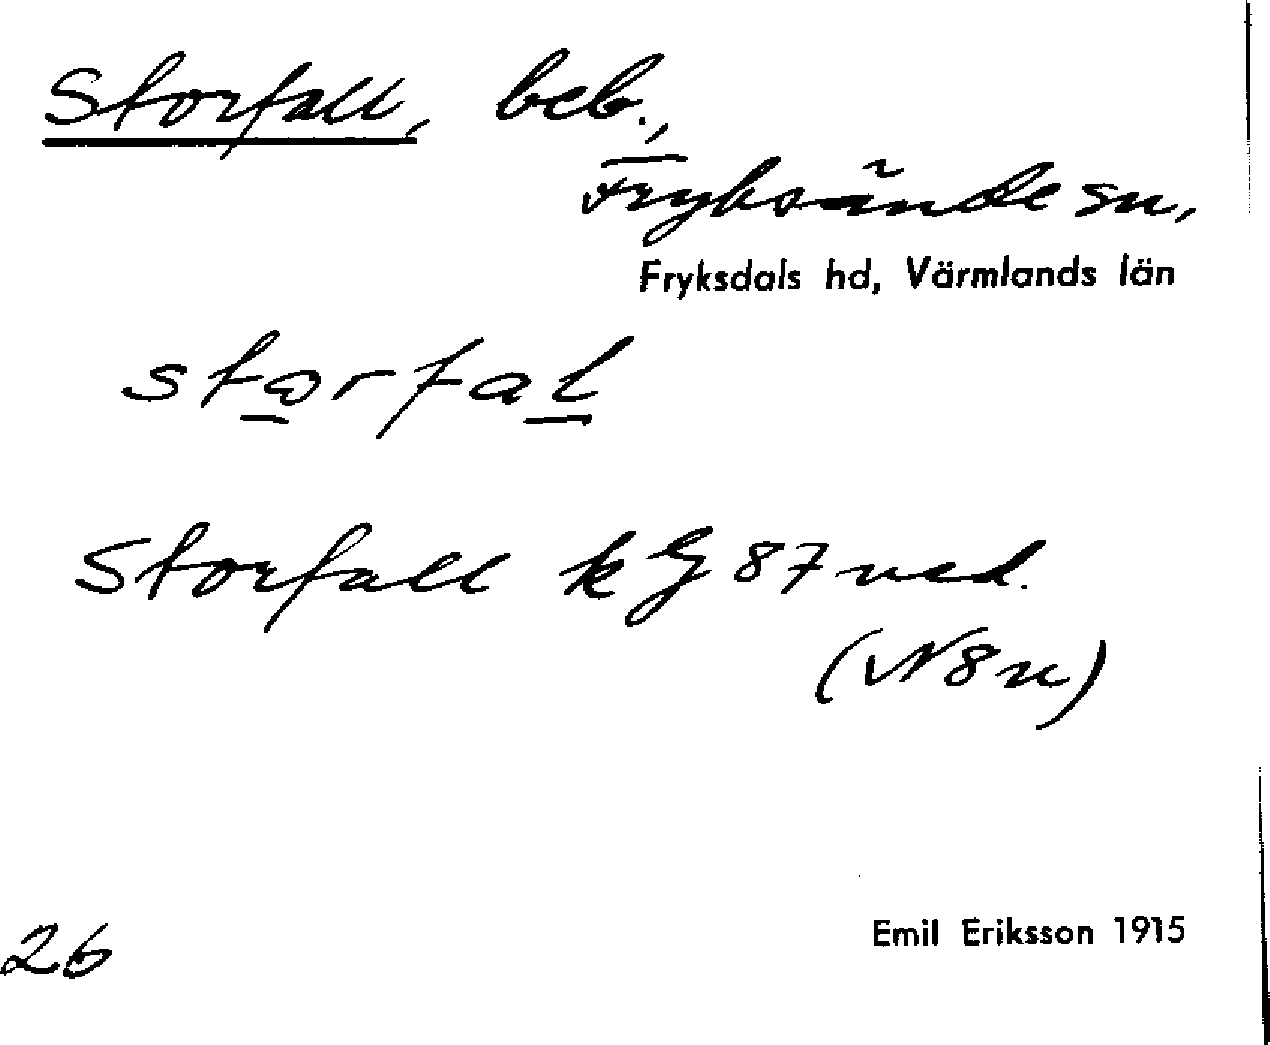 Storfall, beb.,
Fryksände sn,
Fryksdals hd, Värmlands län
Storfall kG 87 ned.
(N8n)
Emil Eriksson 1915
26